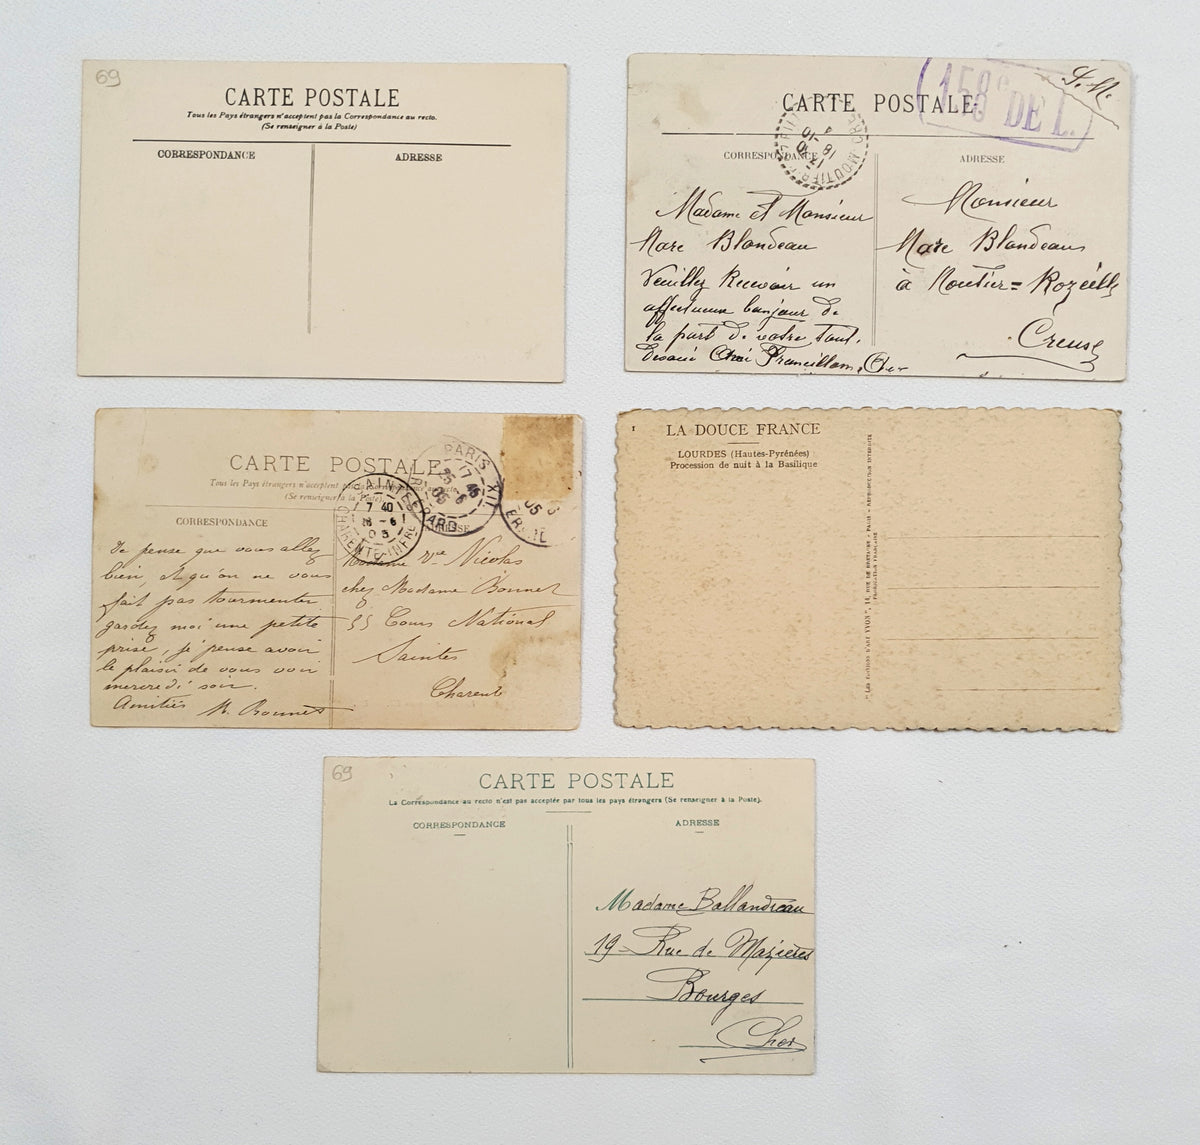 69
CARTE POSTALE
Tous les Pays étrangers n'acceptent pas la Correspondance au recto.
(Se renseigner à la Poste)
CORRESPONDANCE
ADRESSE
158e DE L.
S.M.
CARTE POSTALE
CORRESPONDANCE
ADRESSE
Madame et Monsieur
Marc Blondeau
Veuillez Recevoir un
affectueux bonjour de
la part de votre tout.
Francillon, Cher
Monsieur
Marc Blondeau
à Moutier=Rozeille
Creuse
CARTE POSTALE
Tous les Pays étrangers n'acceptent pas la Correspondance au recto
(Se renseigner à la Poste)
CORRESPONDANCE
ADRESSE
PARIS XII
17 45
25 -6
05
SAINTES
7 40
-6
CHARENTE-INFRE
Je pense que vous allez
bien, et qu'on ne vous
fait pas tourmenter
gardez moi une petite
prise, je pense avoir
le plaisir de vous voir
mercredi soir.
Amitiés M. Bonnet
Madame Vve Nicolas
chez Madame Bonnet
55 Cours National
Saintes
Charente
1
LA DOUCE FRANCE
LOURDES (Hautes-Pyrénées)
Procession de nuit à la Basilique
"LES EDITIONS D'ART YVON", 15, RUE DE BRETAGNE - PARIS - REPRODUCTION INTERDITE
FABRICATION FRANÇAISE
69
CARTE POSTALE
La Correspondance au recto n'est pas acceptée par tous les pays étrangers (Se renseigner à la Poste).
CORRESPONDANCE
ADRESSE
Madame Ballandreau
19 Rue de Mazières
Bourges
Cher